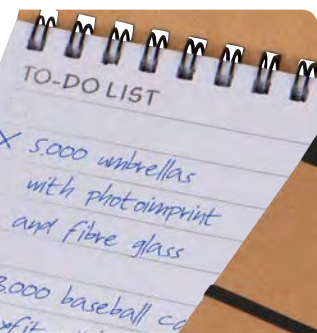 TO-DO LIST
X 5.000 umbrellas
with photoimprint
and fibre glass
3.000 baseball